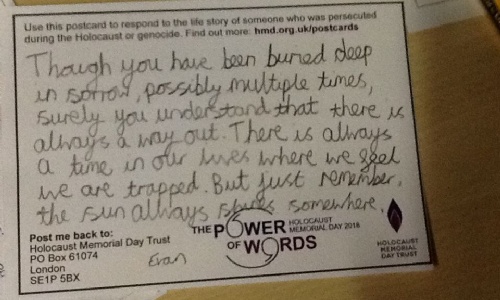 Use this postcard to respond to the life story of someone who was persecuted
during the Holocaust or genocide. Find out more: hmd.org.uk/postcards
Though you have been buried deep
in sorrow, possibly multiple times,
surely you understand that there is
always a way out. There is always
a time in our lives where we feel
we are trapped. But just remember,
the sun always shines somewhere.
Post me back to:
Holocaust Memorial Day Trust
PO Box 61074
London
SE1P 5BX
Evan
THE POWER
OF WORDS
HOLOCAUST
MEMORIAL DAY 2018
HOLOCAUST
MEMORIAL
DAY TRUST